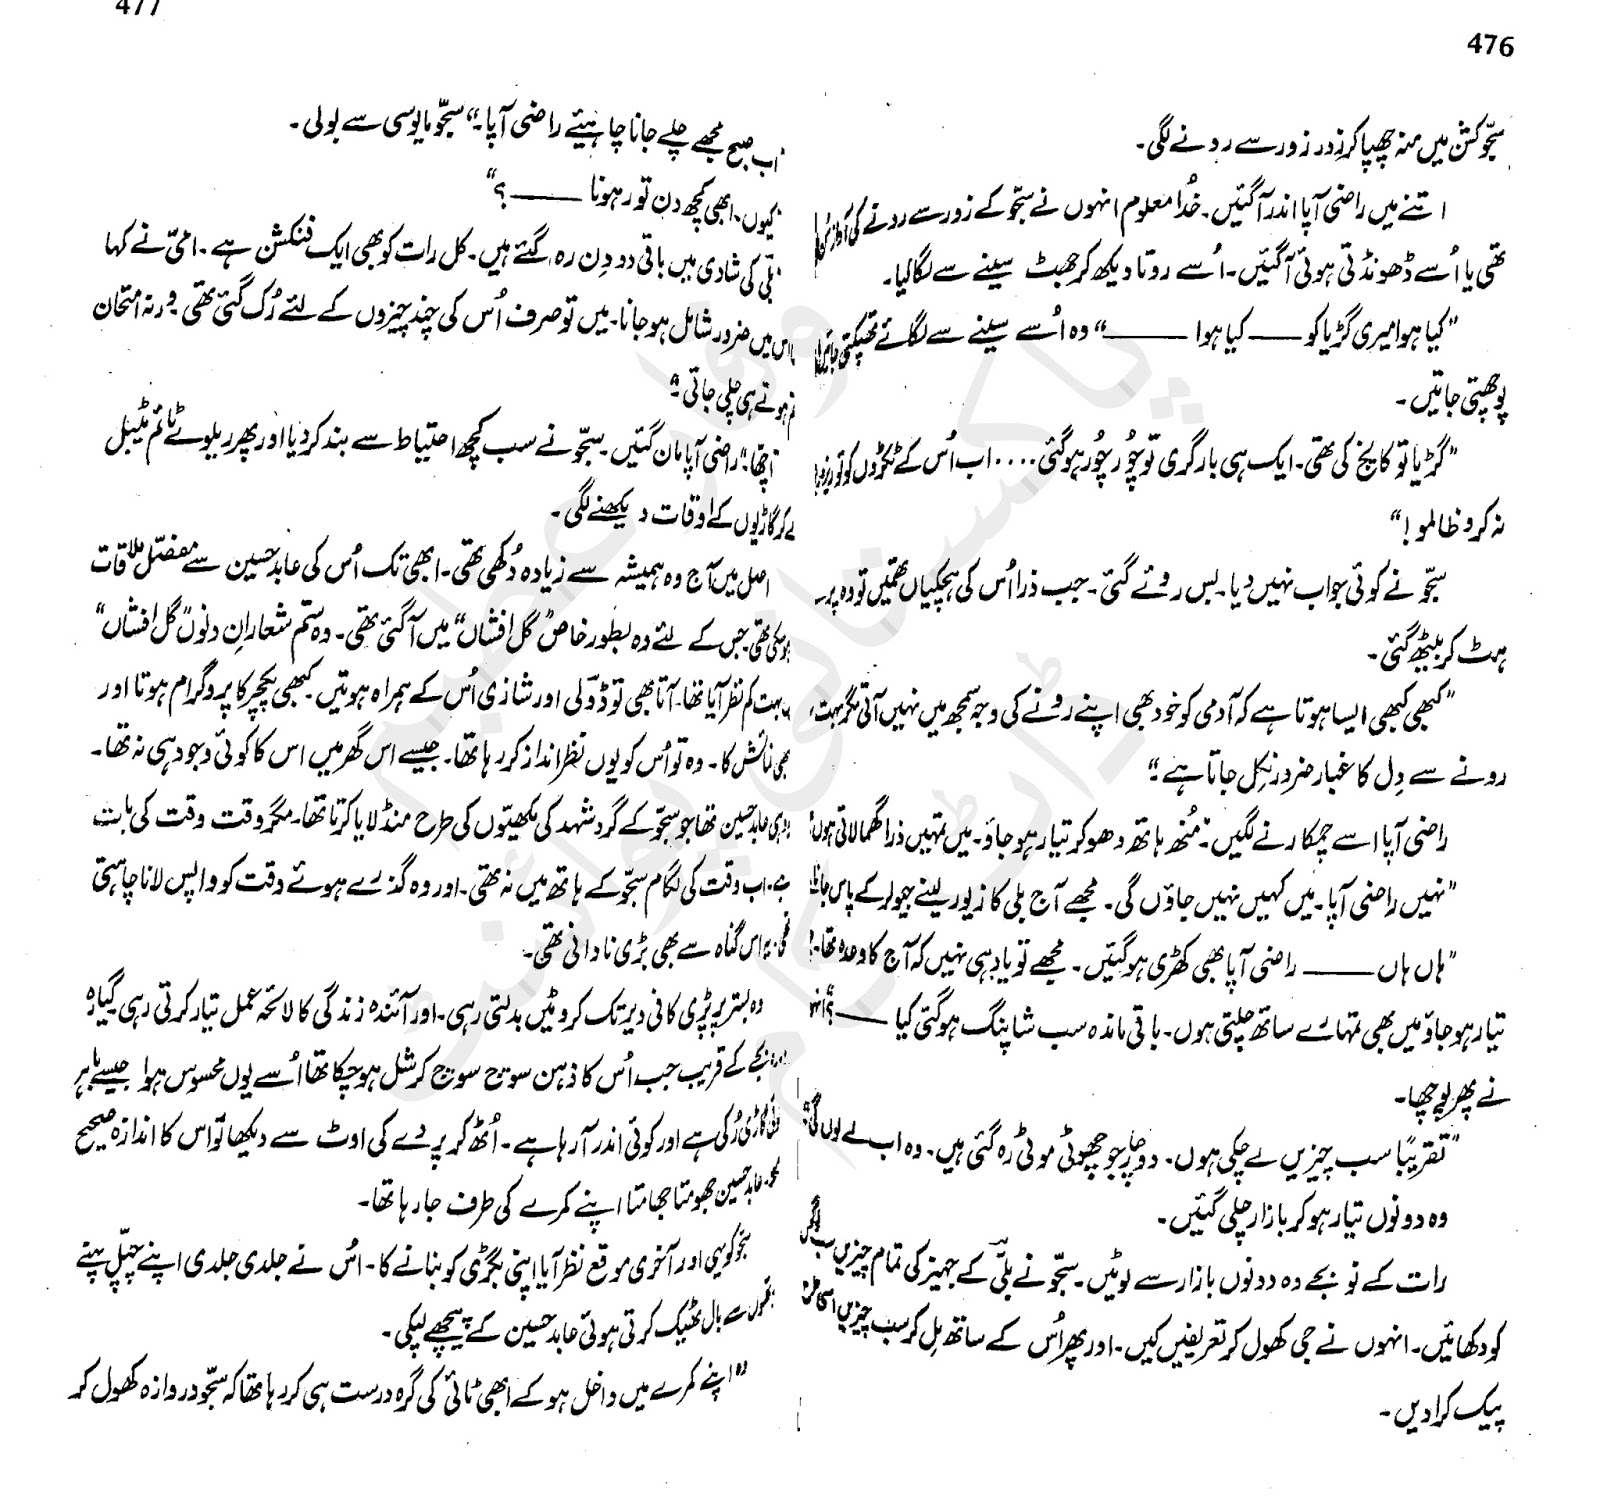 476
سجّو کشن میں منہ چھپا کر زور زور سے رونے لگی۔
اتنے میں راضی آپا اندر آ گئیں۔ خُدا معلوم انہوں نے سجّو کے زور سے رونے کی آواز سُن لی
تھی یا اُسے ڈھونڈتی ہوئی آ گئیں۔ اُسے روتا دیکھ کر جھٹ سینے سے لگا لیا۔
”کیا ہوا میری گڑیا کو —— کیا ہوا ——“ وہ اُسے سینے سے لگائے تھپکتی جاتیں
پوچھتی جاتیں۔
”گڑیا تو کانچ کی تھی۔ ایک ہی بار گری تو چُور چُور ہو گئی .... اب اُس کے ٹکڑوں کو تو ریزہ
نہ کرو ظالمو!“
سجّو نے کوئی جواب نہیں دیا۔ بس روئے گئی۔ جب ذرا اُس کی ہچکیاں تھمیں تو وہ پرے
ہٹ کر بیٹھ گئی۔
”کبھی کبھی ایسا ہوتا ہے کہ آدمی کو خود بھی اپنے رونے کی وجہ سمجھ میں نہیں آتی مگر بہت
رونے سے دِل کا غبار ضرور نکل جاتا ہے۔“
راضی آپا اسے چمکارنے لگیں۔ ”مُنھ ہاتھ دھو کر تیار ہو جاؤ۔ میں تمہیں ذرا گھما لاتی ہوں۔“
”نہیں راضی آپا۔ میں کہیں نہیں جاؤں گی۔ مجھے آج بلی کا زیور لینے جیولر کے پاس جانا
”ہاں ہاں —— راضی آپا بھی کھڑی ہو گئیں۔ مجھے تو یاد ہی نہیں کہ آج کا وعدہ تھا۔
تیار ہو جاؤ میں بھی تمہارے ساتھ چلتی ہوں۔ باقی ماندہ سب شاپنگ ہو گئی کیا ——؟“ انہوں
نے پھر پوچھا۔
”تقریباً سب چیزیں لے چکی ہوں۔ دو چار جو چھوٹی موٹی رہ گئی ہیں۔ وہ اب لے لوں گی۔“
وہ دونوں تیار ہو کر بازار چلی گئیں۔
رات کے نو بجے وہ دونوں بازار سے لوٹیں۔ سجّو نے بلّی کے جہیز کی تمام چیزیں سب
کو دکھائیں۔ انہوں نے جی کھول کر تعریفیں کیں۔ اور پھر اُس کے ساتھ مِل کر سب چیزیں
پیک کرا دیں۔
477
اب صبح مجھے چلے جانا چاہیئے راضی آپا۔“ سجّو مایوسی سے بولی۔
کیوں۔ ابھی کچھ دِن تو رہو نا ——؟“
بلّی کی شادی میں باقی دو دِن رہ گئے ہیں۔ کل رات کو بھی ایک فنکشن ہے۔ امّی نے کہا
اس میں ضرور شامل ہو جانا۔ میں تو صرف اُس کی چند چیزوں کے لئے رُک گئی تھی ورنہ امتحان
ہوتے ہی چلی جاتی۔“
اچھا۔“ راضی آپا مان گئیں۔ سجّو نے سب کچھ احتیاط سے بند کر دیا اور پھر ریلوے ٹائم ٹیبل
لے کر گاڑیوں کے اوقات دیکھنے لگی۔
اصل میں آج وہ ہمیشہ سے زیادہ دُکھی تھی۔ ابھی تک اُس کی عابد حسین سے مفصّل ملاقات
ہو سکی تھی جس کے لئے وہ بطور خاص ”گل افشاں“ میں آ گئی تھی۔ وہ ستم شعار اِن دنوں ”گل افشاں“
بہت کم نظر آیا تھا۔ آتا بھی تو ڈولی اور شازی اُس کے ہمراہ ہوتیں۔ کبھی پکچر کا پروگرام ہوتا اور
کبھی نمائش کا۔ وہ تو اُس کو یوں نظر انداز کر رہا تھا۔ جیسے اس گھر میں اس کا کوئی وجود ہی نہ تھا۔
وہی عابد حسین تھا جو سجّو کے گرد شہد کی مکھیّوں کی طرح منڈلایا کرتا تھا۔ مگر وقت وقت کی بات
ہے۔ اب وقت کی لگام سجّو کے ہاتھ میں نہ تھی۔ اور وہ گذرے ہوئے وقت کو واپس لانا چاہتی
تھی۔ یہ اس گناہ سے بھی بڑی نادانی تھی۔
وہ بستر پر پڑی کافی دیر تک کروٹیں بدلتی رہی۔ اور آئندہ زندگی کا لائحہ عمل تیار کرتی رہی گیارہ
بجے کے قریب جب اُس کا ذہن سوچ سوچ کر شل ہو چکا تھا اُسے یوں محسوس ہوا جیسے باہر
کوئی گاڑی رُکی ہے اور کوئی اندر آ رہا ہے۔ اُٹھ کر پردے کی اوٹ سے دیکھا تو اس کا اندازہ صحیح
تھا۔ عابد حسین جھومتا جھامتا اپنے کمرے کی طرف جا رہا تھا۔
سجّو کو یہی اور آخری موقع نظر آیا اپنی بگڑی کو بنانے کا۔ اُس نے جلدی جلدی اپنے چپّل پہنے
ہاتھوں سے بال ٹھیک کرتی ہوئی عابد حسین کے پیچھے لپکی۔
”اپنے کمرے میں داخل ہو کے ابھی ٹائی کی گرہ درست ہی کر رہا تھا کہ سجّو دروازہ کھول کر